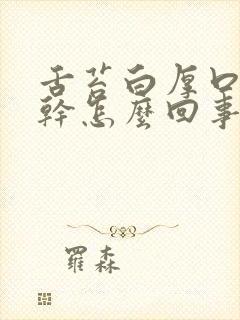 舌苔白厚口
幹怎麼回事
羅森